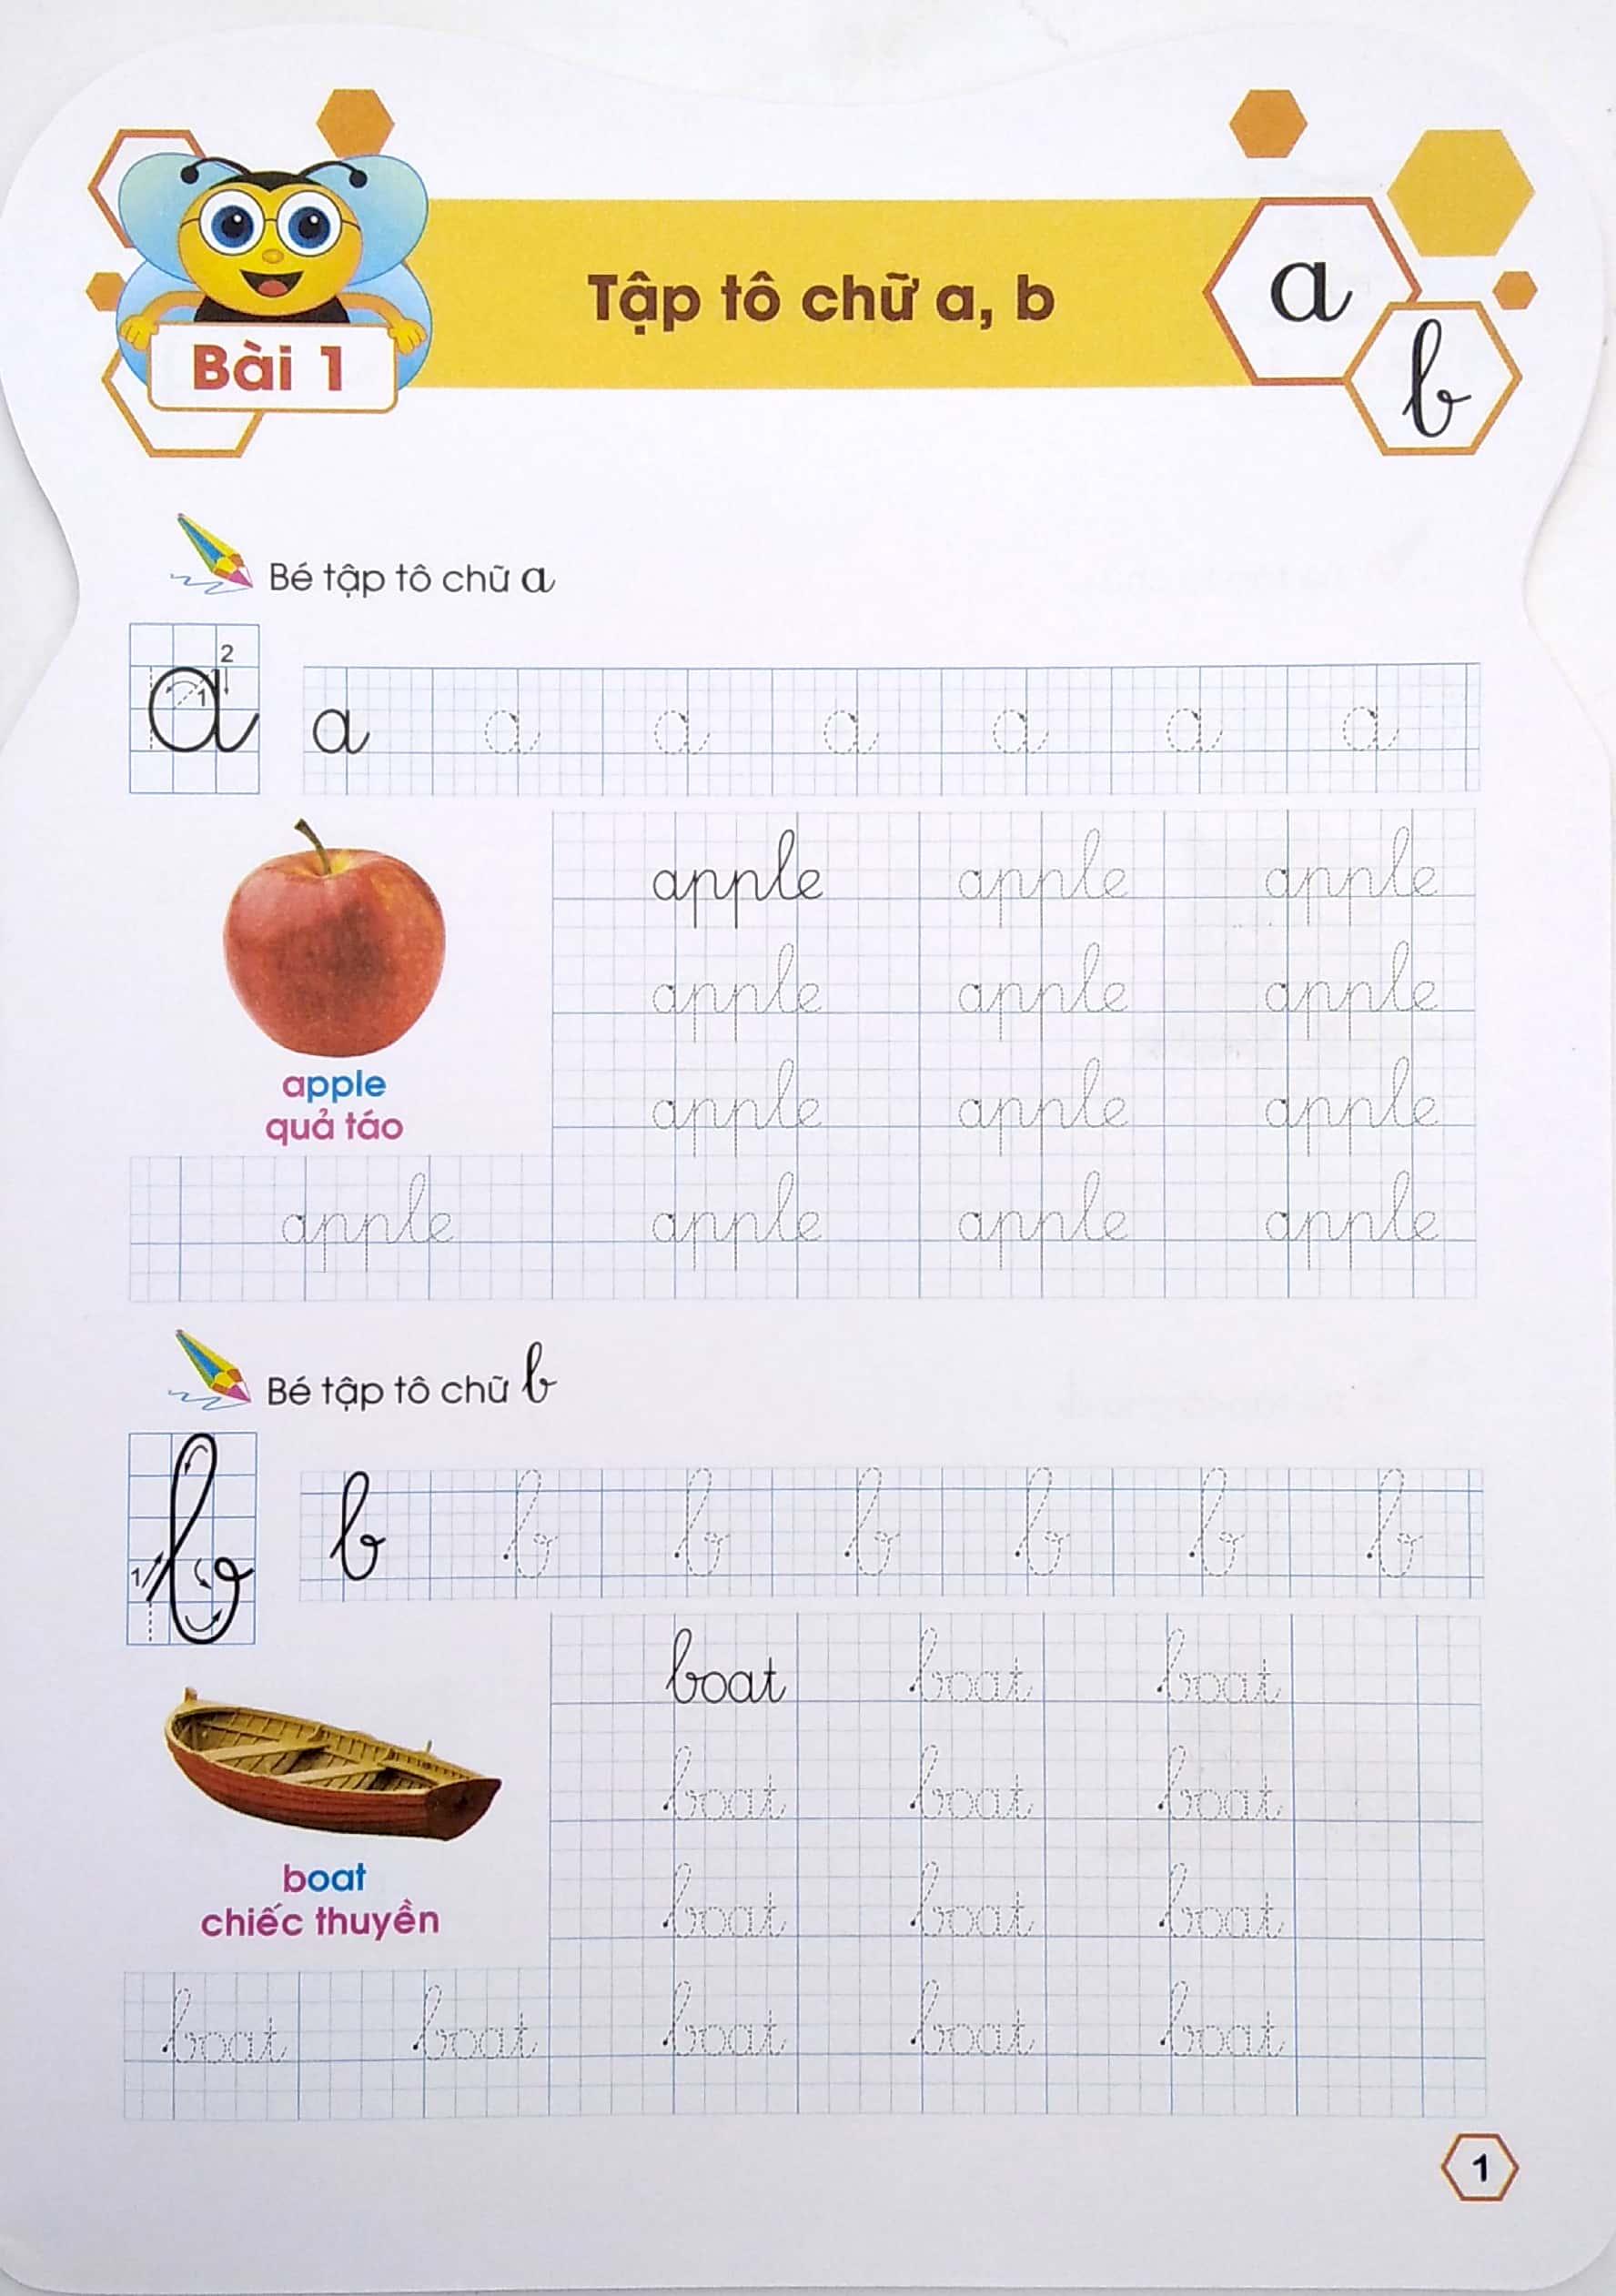 Bài 1
Tập tô chữ a, b
a
b
Bé tập tô chữ a
a 1 2
a a a a a a a
apple apple apple
apple apple apple
apple apple apple
apple
quả táo
apple apple apple apple
Bé tập tô chữ b
b 1
b b b b b b b
boat boat boat
boat boat boat
boat boat boat
boat
chiếc thuyền
boat boat boat boat boat
1